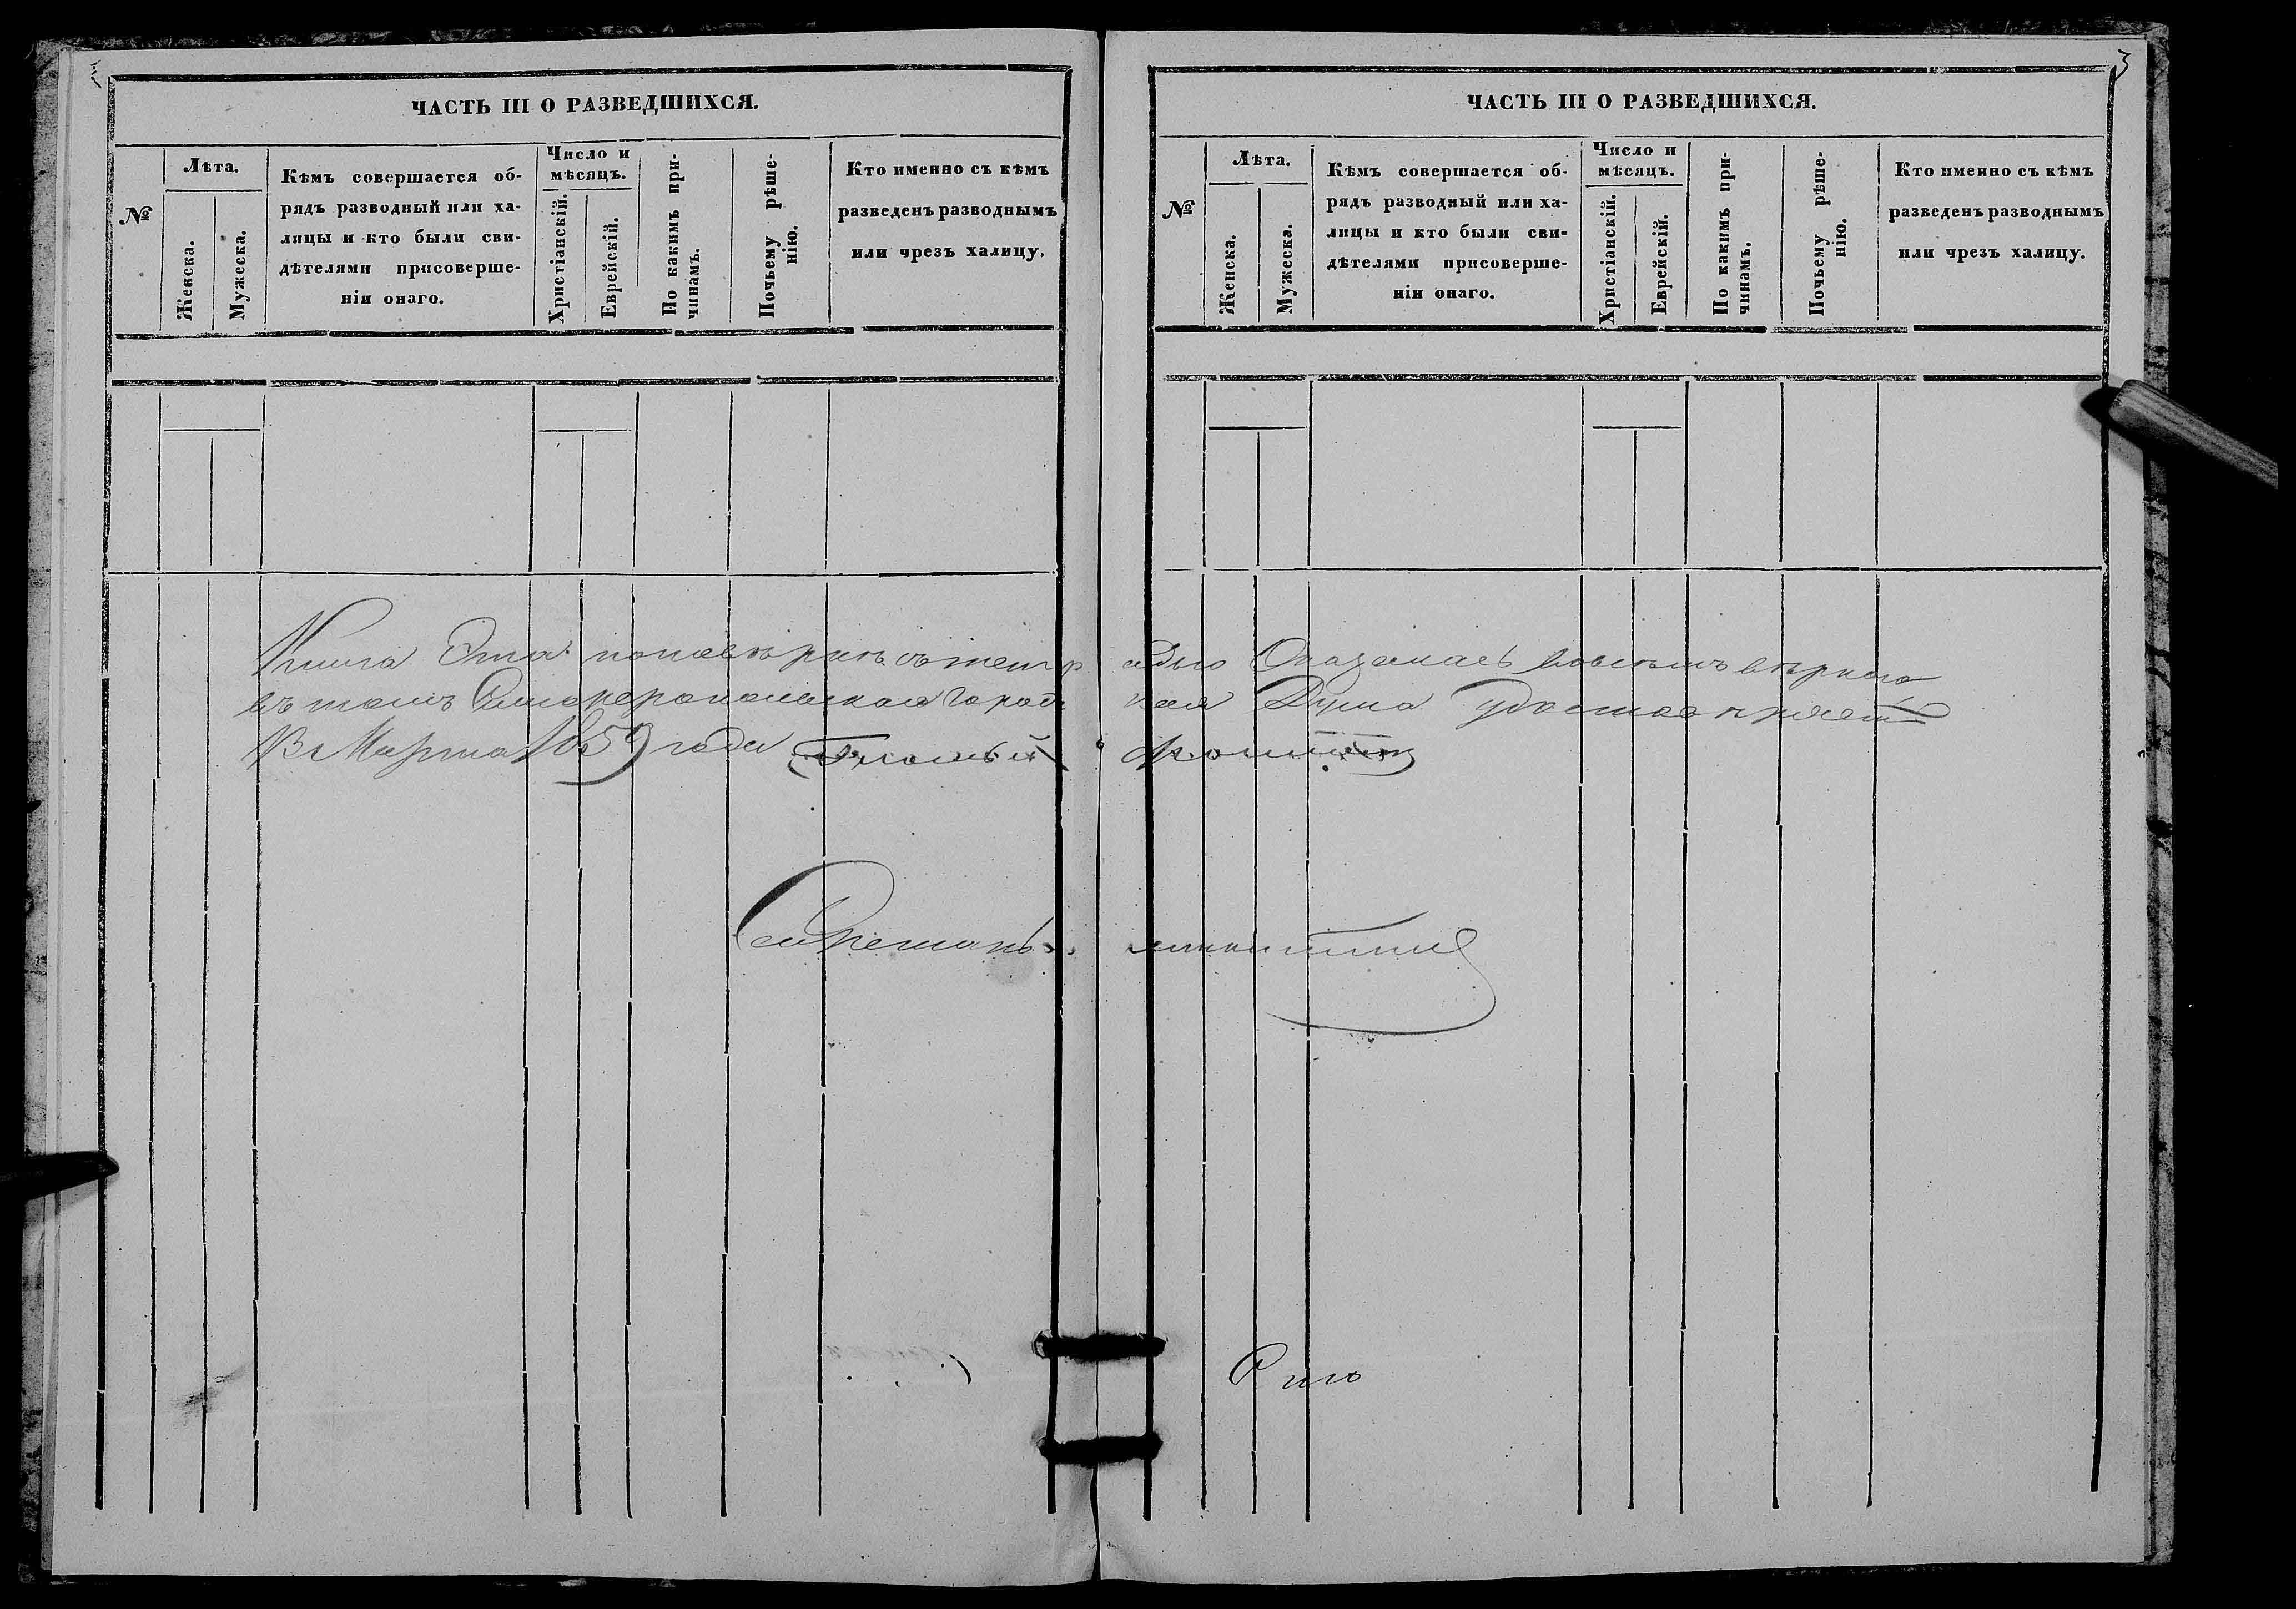 3
ЧАСТЬ III О РАЗВЕДШИХСЯ.
№
Лѣта.
Женска.
Мужеска.
Кѣмъ совершается об-
рядъ разводный или ха-
лицы и кто были сви-
дѣтелями присоверше-
ніи онаго.
Число и
мѣсяцъ.
Христіанскій.
Еврейскій.
По какимъ при-
чинамъ.
Почьему рѣше-
нію.
Кто именно съ кѣмъ
разведенъ разводнымъ
или чрезъ халицу.
ЧАСТЬ III О РАЗВЕДШИХСЯ.
№
Лѣта.
Женска.
Мужеска.
Кѣмъ совершается об-
рядъ разводный или ха-
лицы и кто были сви-
дѣтелями присоверше-
ніи онаго.
Число и
мѣсяцъ.
Христіанскій.
Еврейскій.
По какимъ при-
чинамъ.
Почьему рѣше-
нію.
Кто именно съ кѣмъ
разведенъ разводнымъ
или чрезъ халицу.
Книга Эта оказалась вовсемъ вѣрною
въ томъ Симферопольская Город кая Дума удостовѣряетъ
Марта 1859 года Гласный